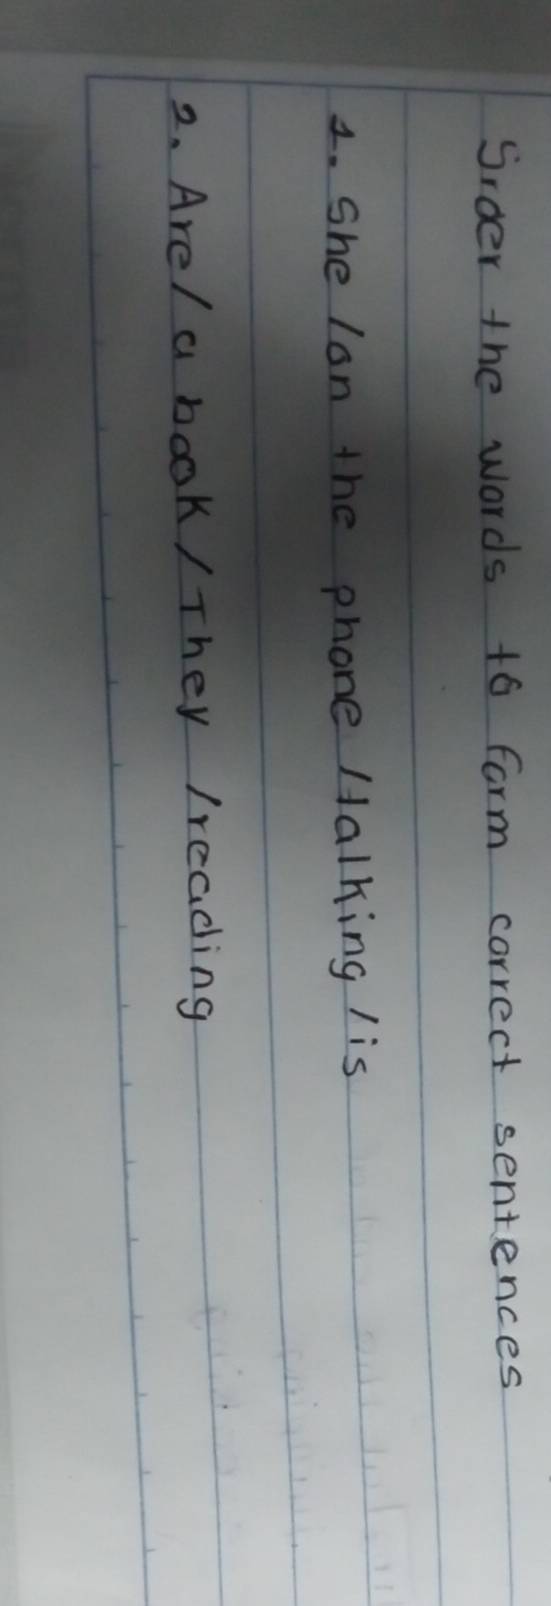 Order the words to form correct sentences
1. She / on the phone / talking / is
2. Are / a book / They / reading